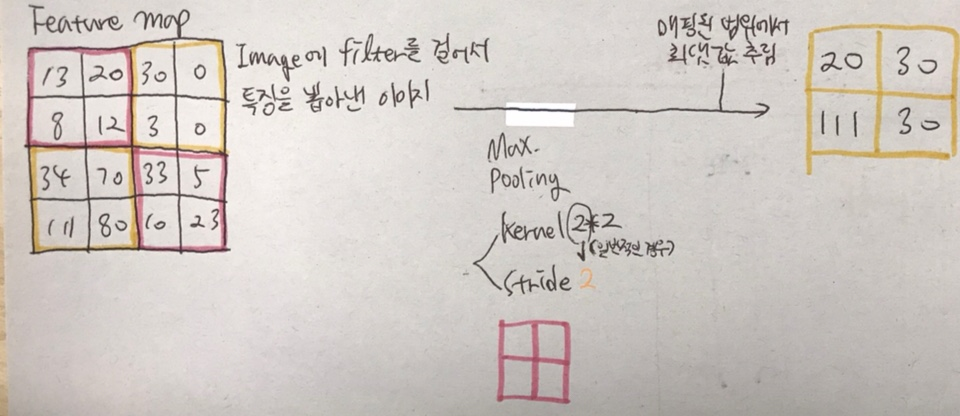 Feature map
13 20 30 0
8 12 3 0
34 70 33 5
111 80 10 23
Image에 filter를 걸어서
특징을 뽑아낸 이미지
매핑된 범위에서
최댓값 추림
Max.
Pooling
kernel 2*2
(일반적인 경우)
Stride 2
20 30
111 30